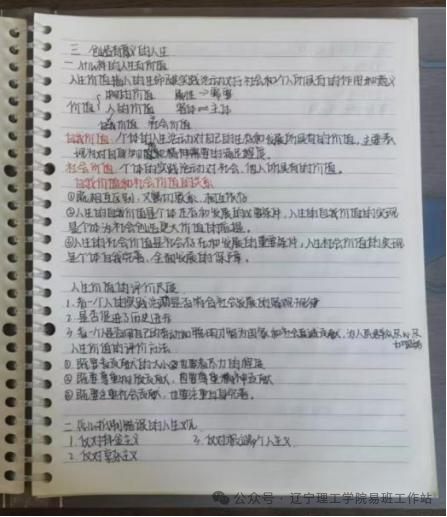 三 创造有意义的人生
一 什么样的人生有价值
人生价值指人的生命及其实践活动对于社会和个人所具有的作用和意义
物的价值 属性→需要
价值 人的价值 客体 主体
自我价值 社会价值
自我价值:个体的人生活动对自己的生存和发展所具有的价值,主要表
现为对自身物质和精神需要的满足程度。
社会价值:个体的实践活动对社会、他人所具有的价值。
自我价值和社会价值的关系
①既相互区别,又密切联系、相互依存
②人生的自我价值是个体生存和发展的必要条件,人生的自我价值的实现
是个体为社会创造更大价值的前提。
③人生的社会价值是社会存在和发展的重要条件,人生社会价值的实现
是个体自我完善,全面发展的保障。
人生价值的评价尺度
1.看一个人的实践活动是否符合社会发展的客观规律
2.是否促进了历史进步
3.看一个人是否用自己的劳动和聪明才智为国家和社会真诚奉献,为人民群众尽心尽力服务
人生价值的评价方法
①既要看贡献的大小也要看尽力的程度
②既要尊重物质贡献,也要尊重精神贡献
③既要注重社会贡献,也要注重自身完善。
二 反对错误的人生观
1.反对拜金主义 3.反对极端个人主义
2.反对享乐主义
公众号·辽宁理工学院易班工作站